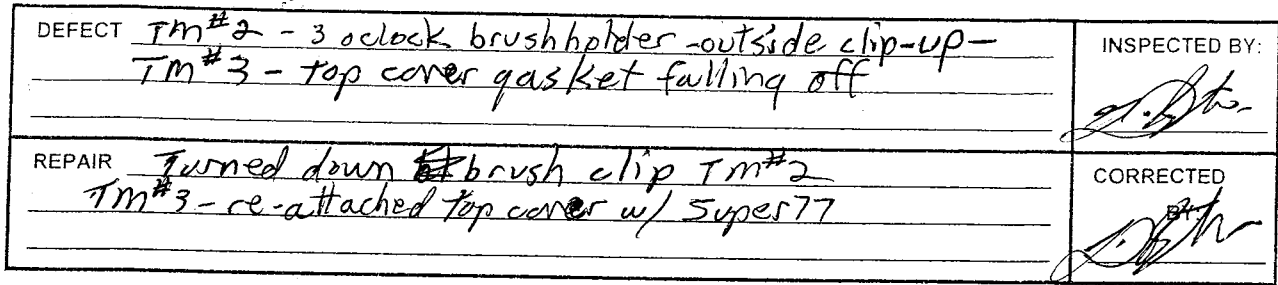 DEFECT TM#2 - 3 oclock brushholder - outside clip-up -
TM#3 - top cover gasket falling off
INSPECTED BY:
REPAIR Turned down brush clip TM#2
TM#3 - re-attached top cover w/ Super77
CORRECTED
BY: